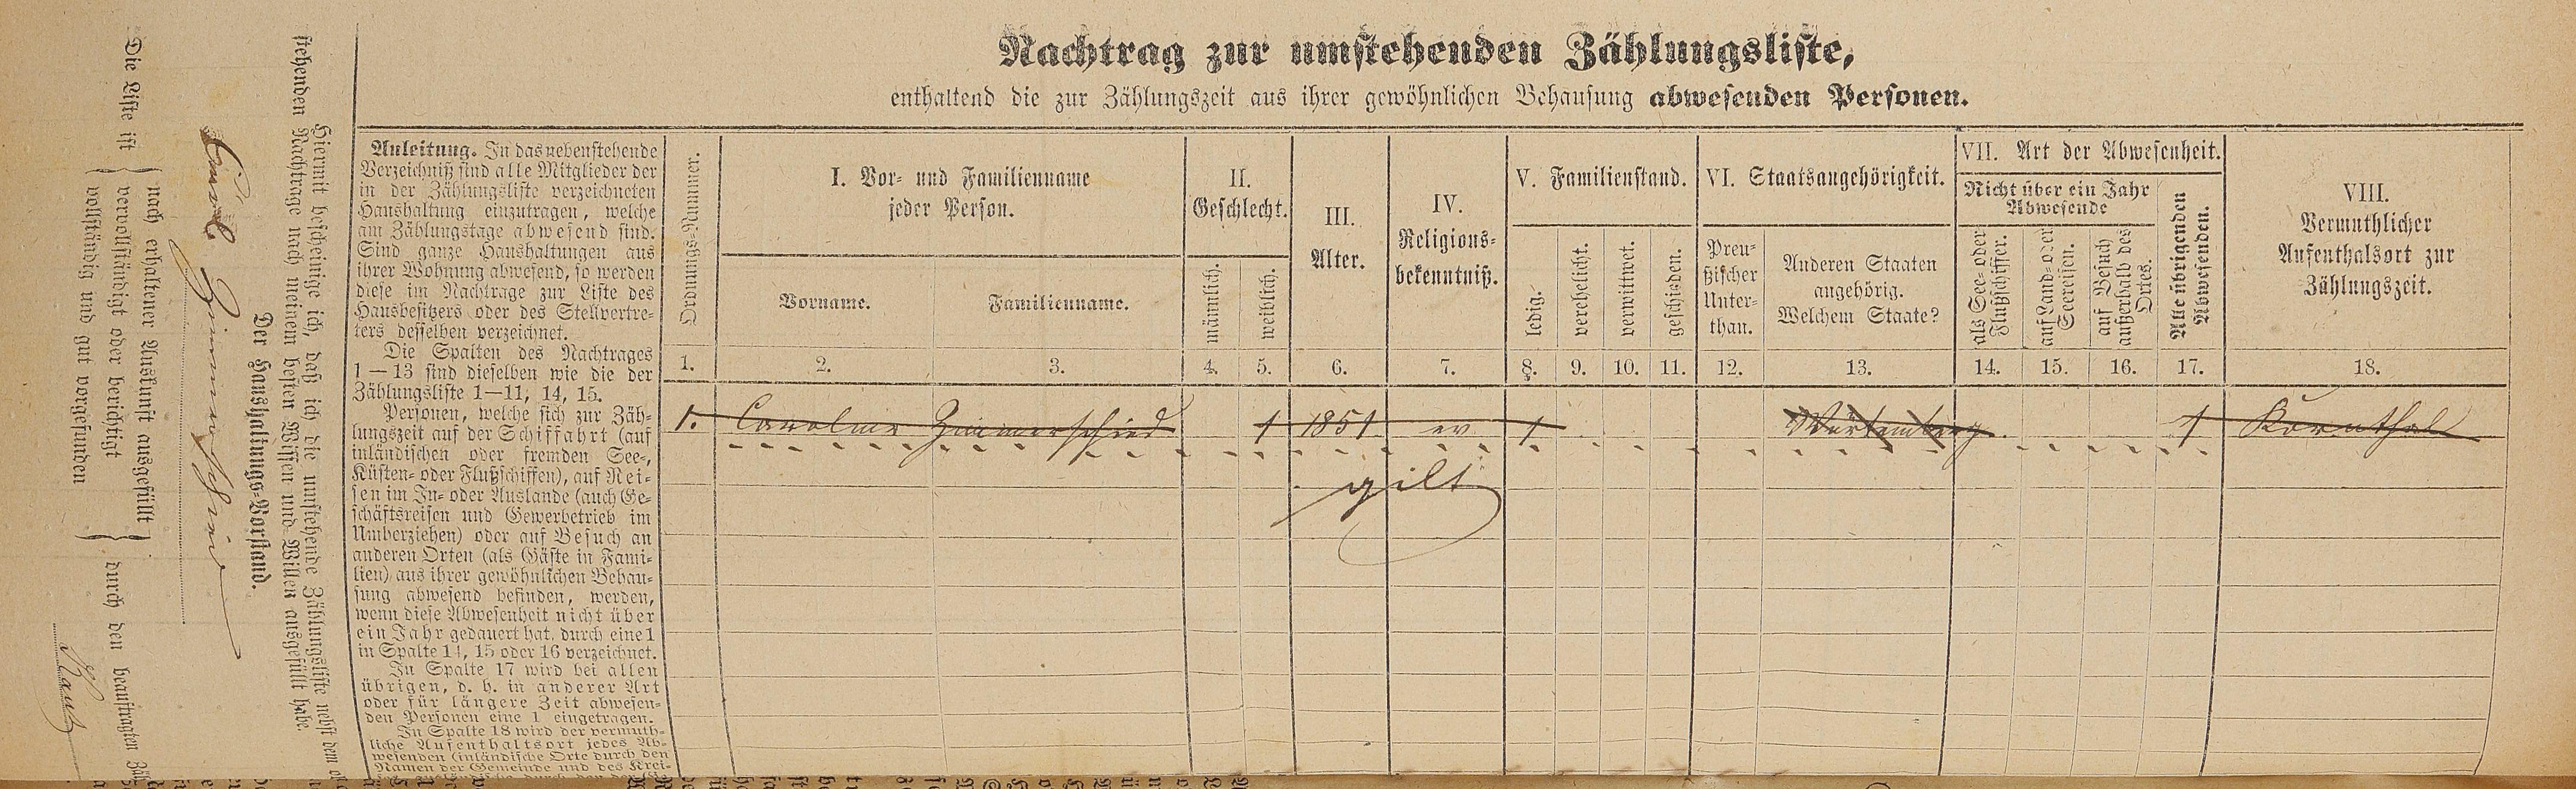 Nachtrag zur umstehenden Zählungsliste,
enthaltend die zur Zählungszeit aus ihrer gewöhnlichen Behausung abwesenden Personen.
Anleitung. In das nebenstehende
Verzeichniß sind alle Mitglieder der
in der Zählungsliste verzeichneten
Haushaltung einzutragen, welche
am Zählungstage abwesend sind.
Sind ganze Haushaltungen aus
ihrer Wohnung abwesend, so werden
diese im Nachtrage zur Liste des
Hausbesitzers oder des Stellvertre-
ters desselben verzeichnet.
Die Spalten des Nachtrages
1—13 sind dieselben wie die der
Zählungsliste 1—11, 14, 15.
Personen, welche sich zur Zäh-
lungszeit auf der Schiffahrt (auf
inländischen oder fremden See-,
Küsten- oder Flußschiffen), auf Rei-
sen im In- oder Auslande (auch Ge-
schäftsreisen und Gewerbetrieb im
Umherziehen) oder auf Besuch an
anderen Orten (als Gäste in Fami-
lien) aus ihrer gewöhnlichen Behau-
sung abwesend befinden, werden,
wenn diese Abwesenheit nicht über
ein Jahr gedauert hat, durch eine 1
in Spalte 14, 15 oder 16 verzeichnet.
In Spalte 17 wird bei allen
übrigen, d. h. in anderer Art
oder für längere Zeit abwesen-
den Personen eine 1 eingetragen.
In Spalte 18 wird der vermuth-
liche Aufenthaltsort jedes Ab-
wesenden (inländische Orte durch den
Namen der Gemeinde und des Krei-
Ordnungs-Nummer.
I. Vor- und Familienname
jeder Person.
Vorname. Familienname.
II.
Geschlecht.
männlich.
weiblich.
III.
Alter.
IV.
Religions-
bekenntniß.
V. Familienstand.
ledig.
verehelicht.
verwittwet.
geschieden.
VI. Staatsangehörigkeit.
Preu-
ßischer
Unter-
than.
Anderen Staaten
angehörig.
Welchem Staate?
VII. Art der Abwesenheit.
Nicht über ein Jahr
Abwesende
als See- oder
Flußschiffer.
auf Land- oder
Seereisen.
auf Besuch
außerhalb des
Ortes.
Alle übrigenden
Abwesenden.
VIII.
Vermuthlicher
Aufenthalsort zur
Zählungszeit.
1. 2. 3. 4. 5. 6. 7. 8. 9. 10. 11. 12. 13. 14. 15. 16. 17. 18.
1. Caroline Zimmerschied 1 1851 ev 1 Würtemberg 1 Kornthal
gilt
Hiermit bescheinige ich, daß ich die umstehende Zählungsliste nebst dem
stehenden Nachtrage nach meinem besten Wissen und Willen ausgefüllt habe.
Der Haushaltungs-Vorstand.
Zimmerschied
Die Liste ist
nach erhaltener Auskunft ausgefüllt
vervollständigt oder berichtigt
vollständig und gut vorgefunden
durch den beauftragten